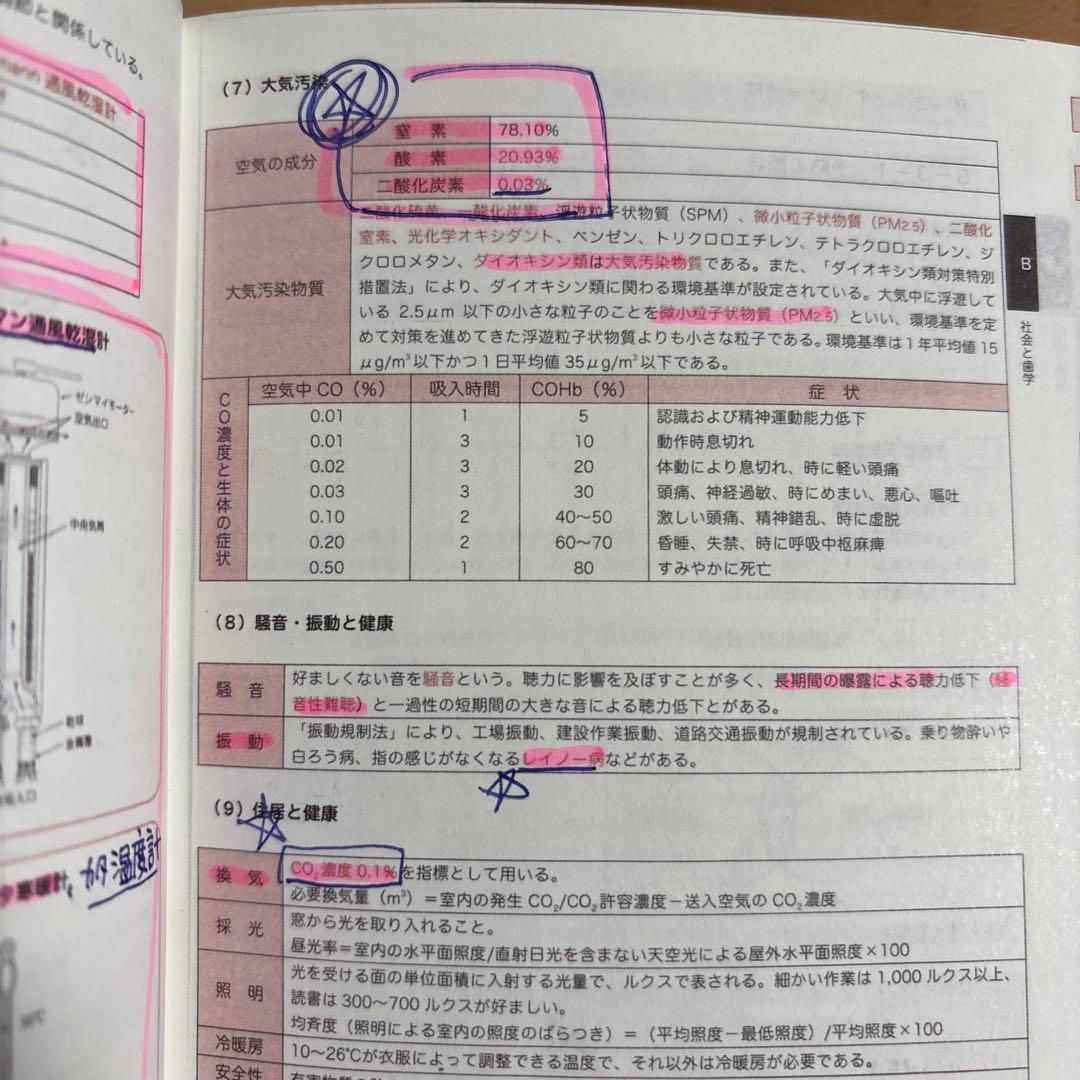 節と関係している。
通風乾湿計
タン通風乾湿計
ゼンマイモーター
空気出口
中央気筒
乾球
金属覆
カタ温度計
(7) 大気汚染
空気の成分
窒 素 78.10%
酸 素 20.93%
二酸化炭素 0.03%
大気汚染物質
二酸化硫黄、一酸化炭素、浮遊粒子状物質（SPM）、微小粒子状物質（PM2.5）、二酸化
窒素、光化学オキシダント、ベンゼン、トリクロロエチレン、テトラクロロエチレン、ジ
クロロメタン、ダイオキシン類は大気汚染物質である。また、「ダイオキシン類対策特別
措置法」により、ダイオキシン類に関わる環境基準が設定されている。大気中に浮遊して
いる 2.5μm 以下の小さな粒子のことを微小粒子状物質（PM2.5）といい、環境基準を定
めて対策を進めてきた浮遊粒子状物質よりも小さな粒子である。環境基準は1年平均値 15
μg/m³以下かつ1日平均値 35μg/m³以下である。
CO濃度と生体の症状
空気中 CO（%） 吸入時間 COHb（%） 症 状
0.01 1 5 認識および精神運動能力低下
0.01 3 10 動作時息切れ
0.02 3 20 体動により息切れ、時に軽い頭痛
0.03 3 30 頭痛、神経過敏、時にめまい、悪心、嘔吐
0.10 2 40〜50 激しい頭痛、精神錯乱、時に虚脱
0.20 2 60〜70 昏睡、失禁、時に呼吸中枢麻痺
0.50 1 80 すみやかに死亡
(8) 騒音・振動と健康
騒 音
好ましくない音を騒音という。聴力に影響を及ぼすことが多く、長期間の曝露による聴力低下（騒
音性難聴）と一過性の短期間の大きな音による聴力低下とがある。
振 動
「振動規制法」により、工場振動、建設作業振動、道路交通振動が規制されている。乗り物酔いや
白ろう病、指の感じがなくなるレイノー病などがある。
(9) 住居と健康
換 気
CO₂濃度 0.1%を指標として用いる。
必要換気量（m³）＝室内の発生 CO₂/CO₂許容濃度－送入空気の CO₂濃度
採 光
窓から光を取り入れること。
昼光率＝室内の水平面照度/直射日光を含まない天空光による屋外水平面照度×100
照 明
光を受ける面の単位面積に入射する光量で、ルクスで表される。細かい作業は 1,000 ルクス以上、
読書は 300〜700 ルクスが好ましい。
均斉度（照明による室内の照度のばらつき）＝（平均照度－最低照度）/平均照度×100
冷暖房
10〜26℃が衣服によって調整できる温度で、それ以外は冷暖房が必要である。
安全性
B
社会と歯学